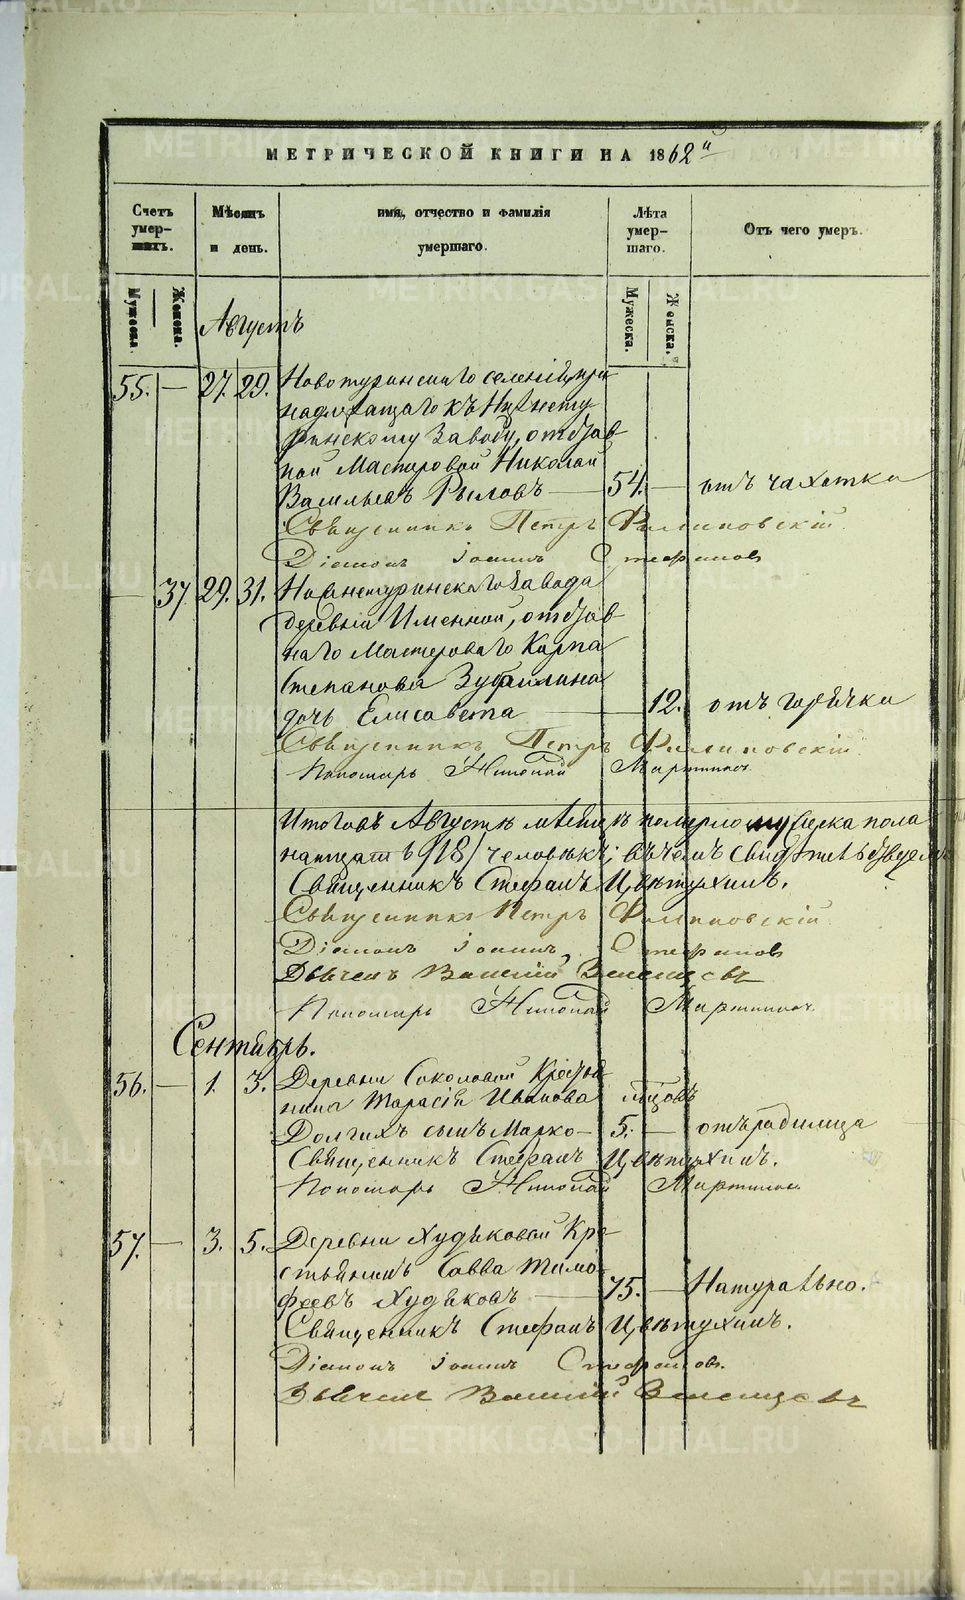 МЕТРИЧЕСКОЙ КНИГИ НА 1862й
Счетъ умер-шихъ.
Мѣсяцъ и день.
имя, отчество и фамилія умершаго.
Лѣта умер-шаго.
Отъ чего умеръ.
Мужеска.
Женска.
Мужеска.
Женска.
Августъ
55. — 27. 29. Новотуринскаго селенія, при
надлежащаго къ Нижнету
ринскому Заводу, отстав
ной Мастеровой Николай
Васильевъ Рыловъ — 54. — отъ чахотки
Священникъ Петръ Филиповскій
Діаконъ Іоаннъ Стефановъ
— 37 29. 31. Нижнетуринскаго Завода
деревни Именной, отстав
наго Мастероваго Карпа
Степанова Зубалина
дочь Елисавета — 12. отъ горячки
Священникъ Петръ Филиповскій
Пономарь Николай
Итого въ Августѣ мѣсяцѣ померло мужеска пола
человѣкъ; въ чемъ свидѣтельствуемъ
Священникъ Стефанъ Цвѣтухинъ.
Священникъ Петръ Филиповскій
Діаконъ Іоаннъ Стефановъ
Дьячекъ Василій
Пономарь Николай
Сентябрь.
56. — 1. 3. Деревни Соколовой Крестья
нина Тарасія Иванова
Долгихъ сынъ Марко — 5. — отъ родимца
Священникъ Стефанъ Цвѣтухинъ.
Пономарь Николай
57. — 3. 5. Деревни Худяковой Кре
стьянинъ Савва Тимо
феевъ Худяковъ — 75. — Натурально.
Священникъ Стефанъ Цвѣтухинъ.
Діаконъ Іоаннъ Стефановъ.
Дьячекъ Василій
METRIKI.GASO-URAL.RU